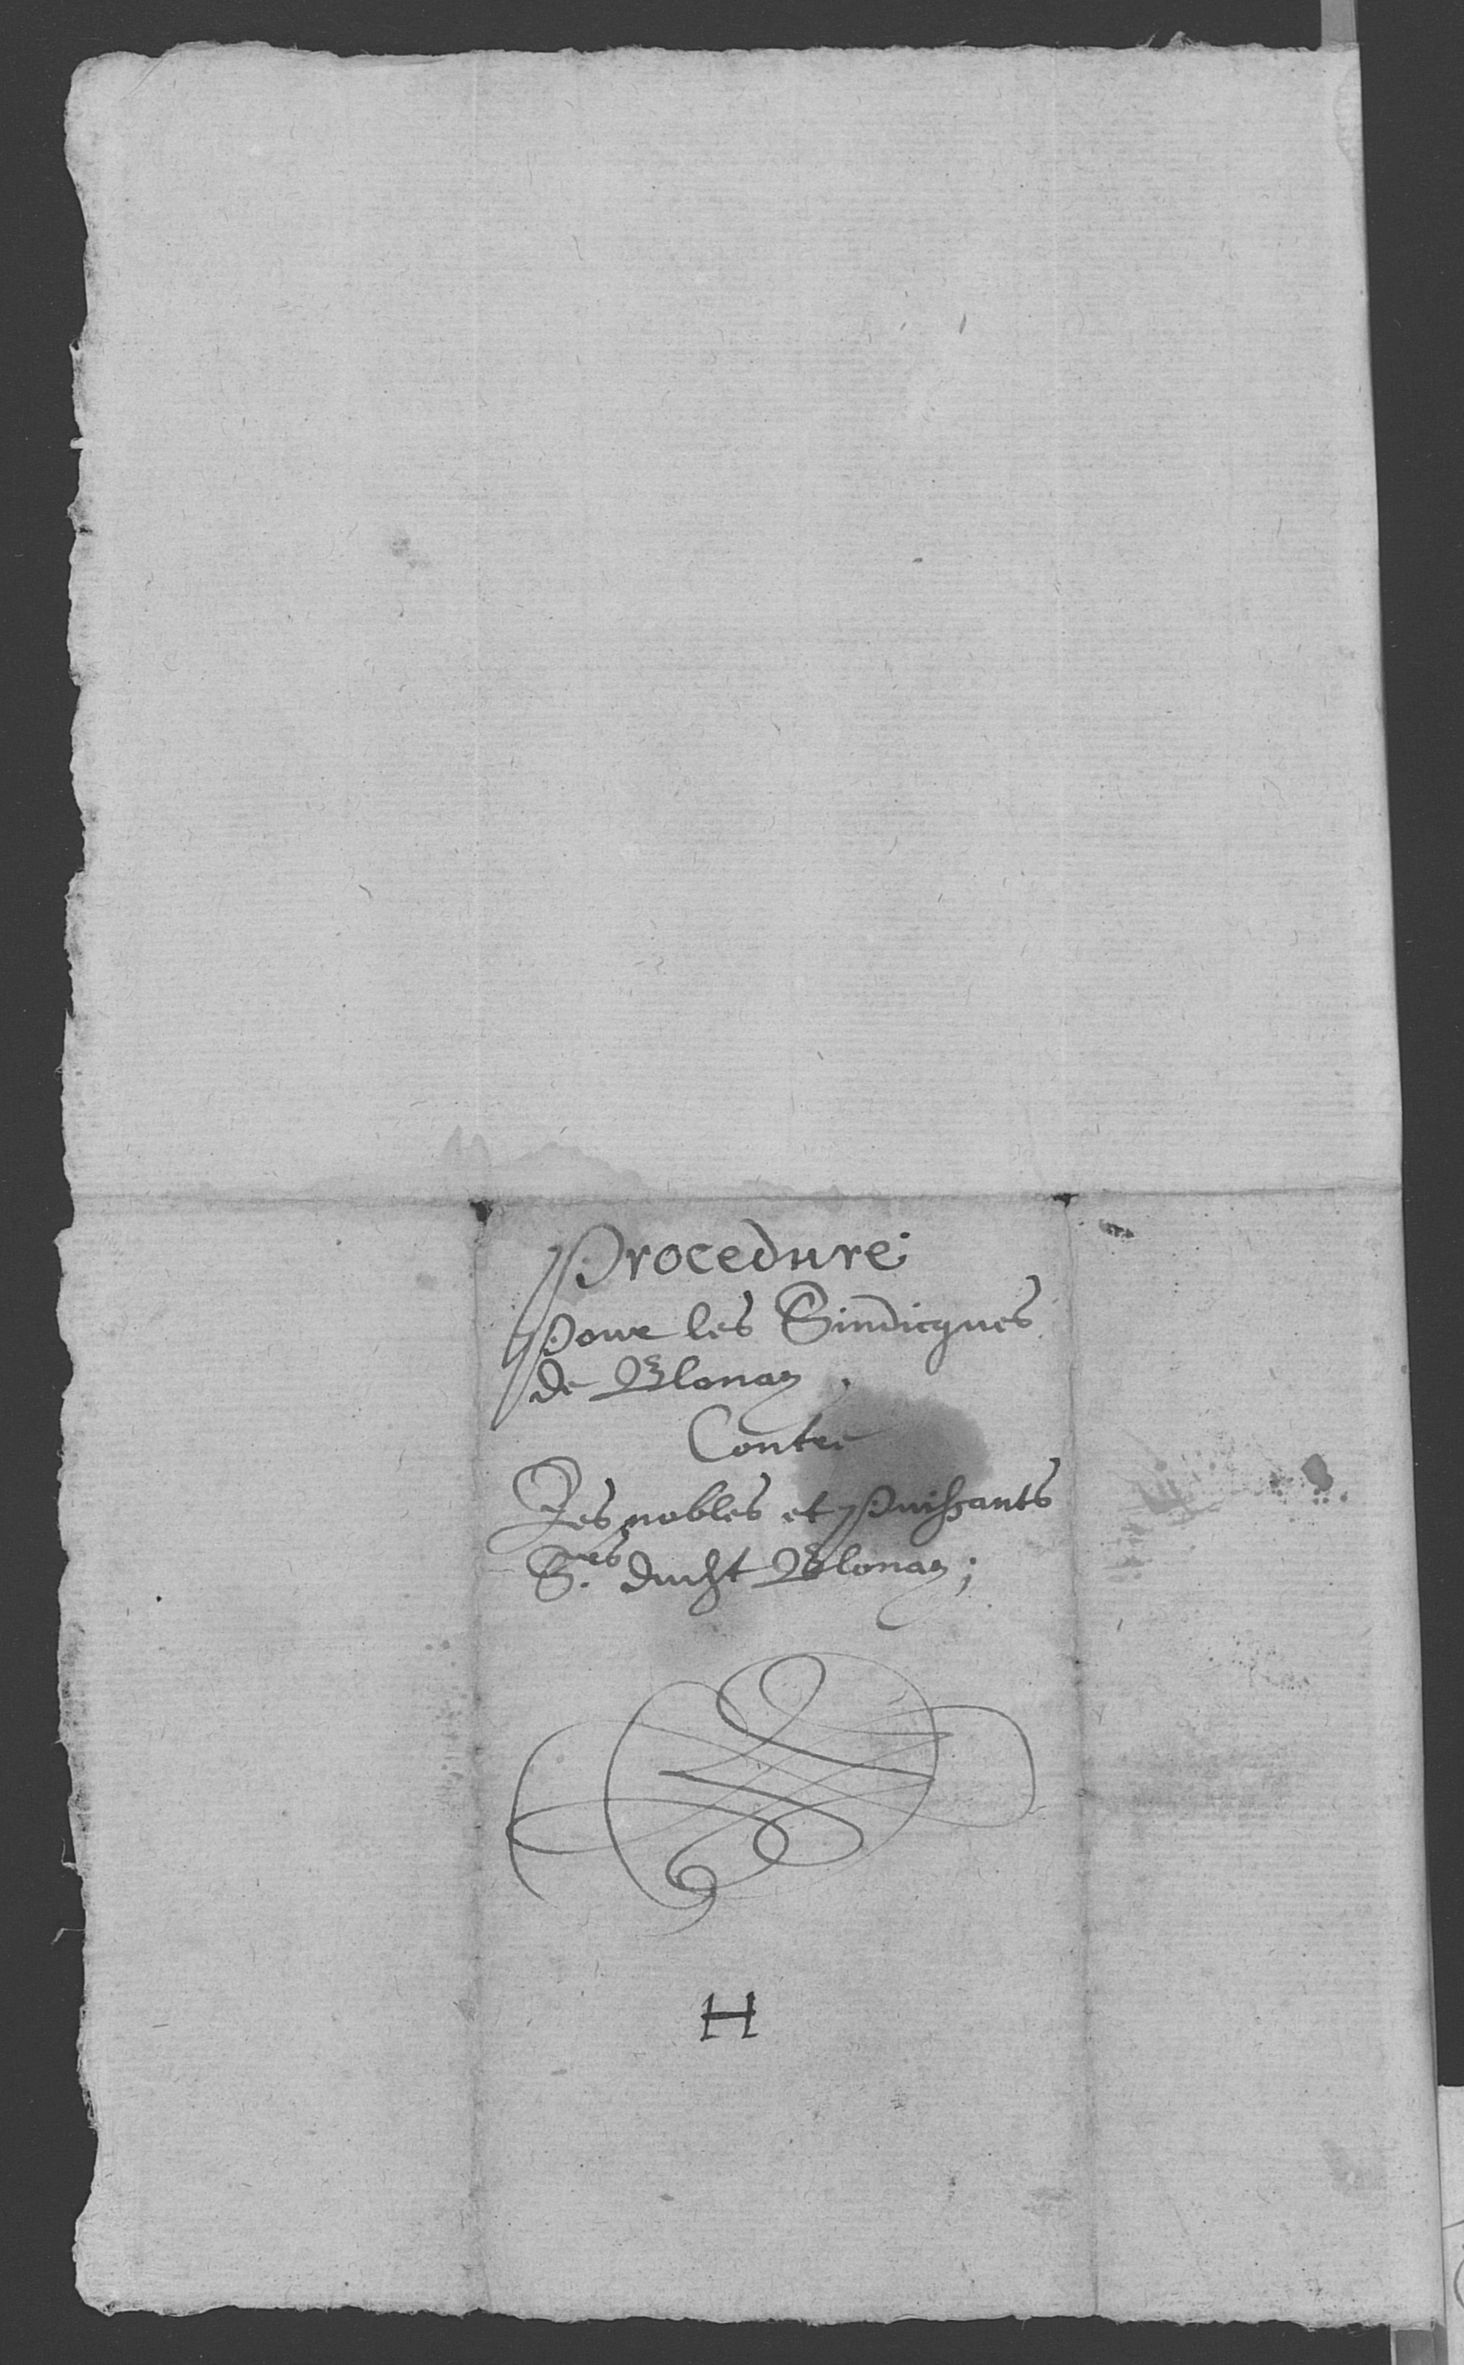 Procedure
Pour les Sindicques
de Blonay.
Contre
Les nobles et Puissants
S.rs dudit Blonay;
H